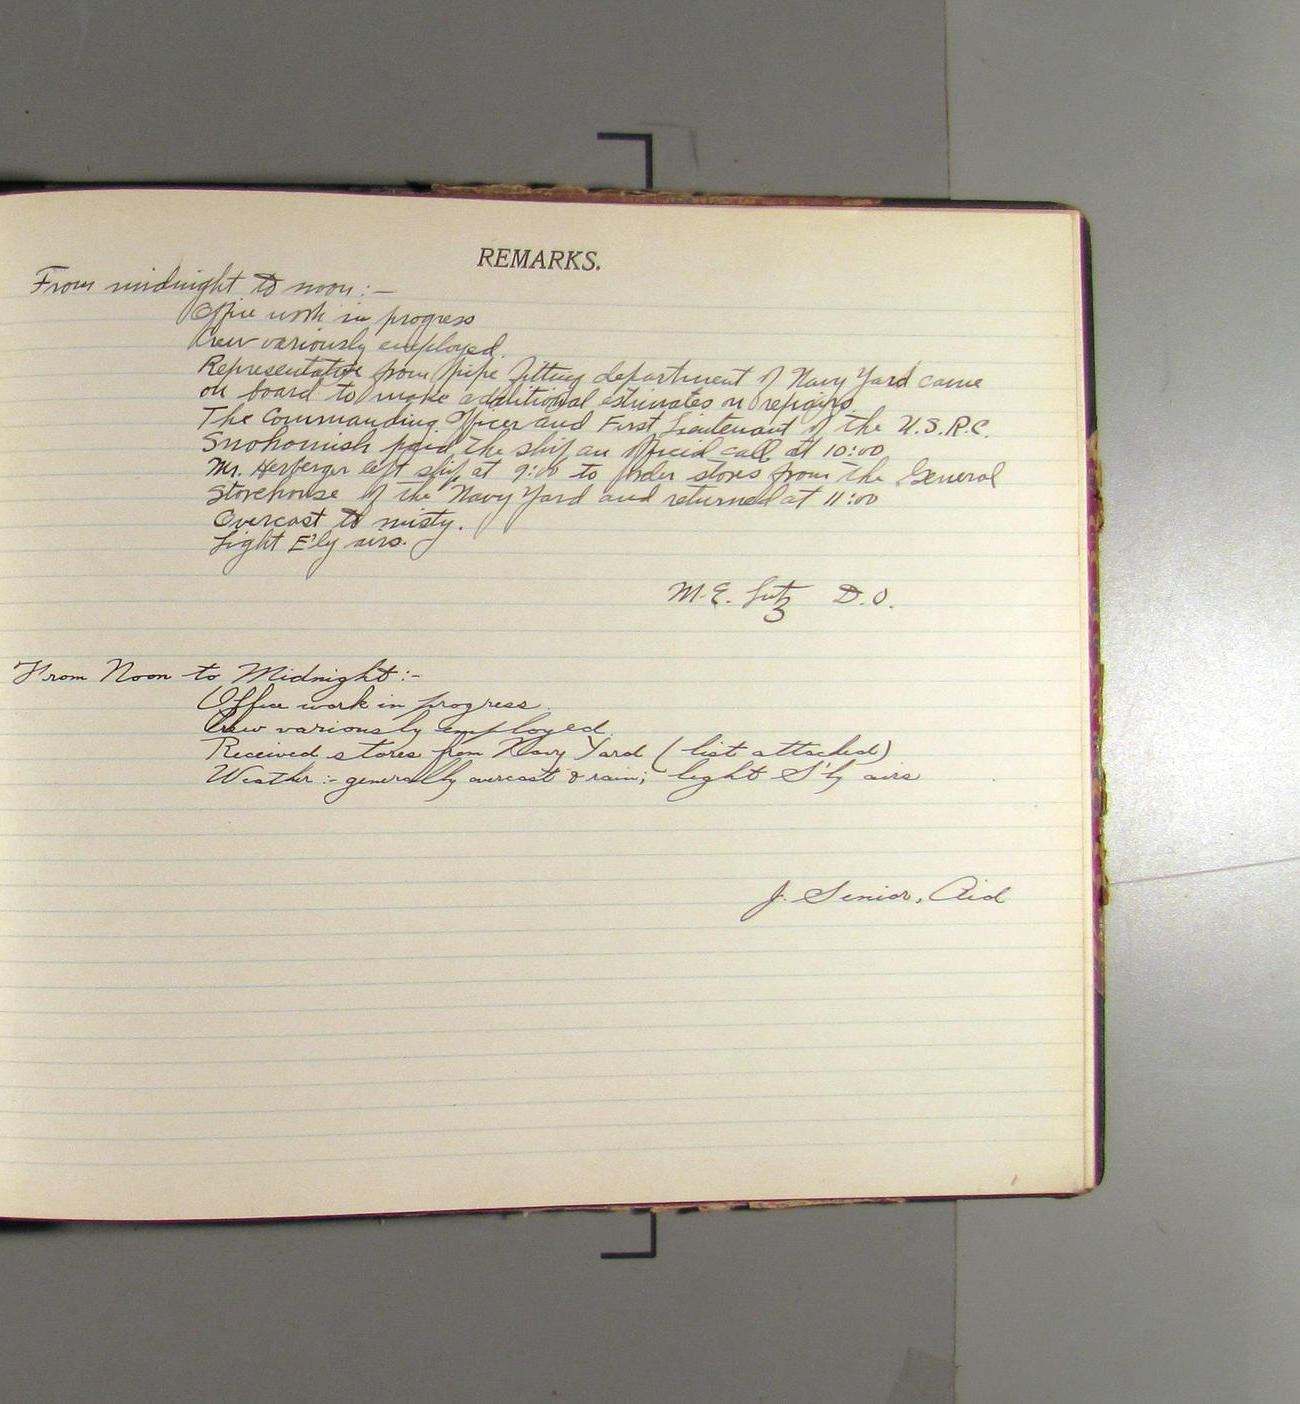 REMARKS.
From midnight to noon:—
Office work in progress
Crew variously employed.
Representative from pipe fitting department of Navy Yard came
on board to make additional estimates on repairs.
The Commanding Officer and First Lieutenant of the U.S.R.C.
Snohomish paid the ship an official call at 10:00
Mr. Herberger left ship at 9:00 to order stores from the General
Storehouse of the Navy Yard and returned at 11:00
Overcast to misty.
Light E'ly airs.
M.E. Lutz D.O.
From Noon to Midnight:-
Office work in progress.
Crew variously employed.
Received stores from Navy Yard (list attached)
Weather:- generally overcast & rain; light S'ly airs
J. Senior, Aid